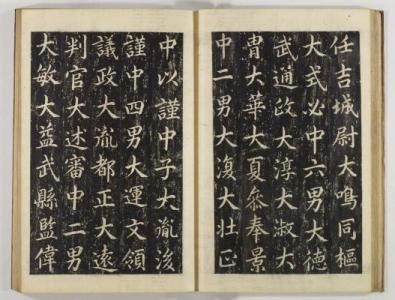 任吉城尉大鳴同樞
大式必中六男大德
武通政大淳大淑大
冑大華大夏叅奉景
中二男大復大壯正
中以謹中子大胤後
謹中四男大運文領
議政大胤都正大遠
判官大述審中二男
大敏大益武縣監偉